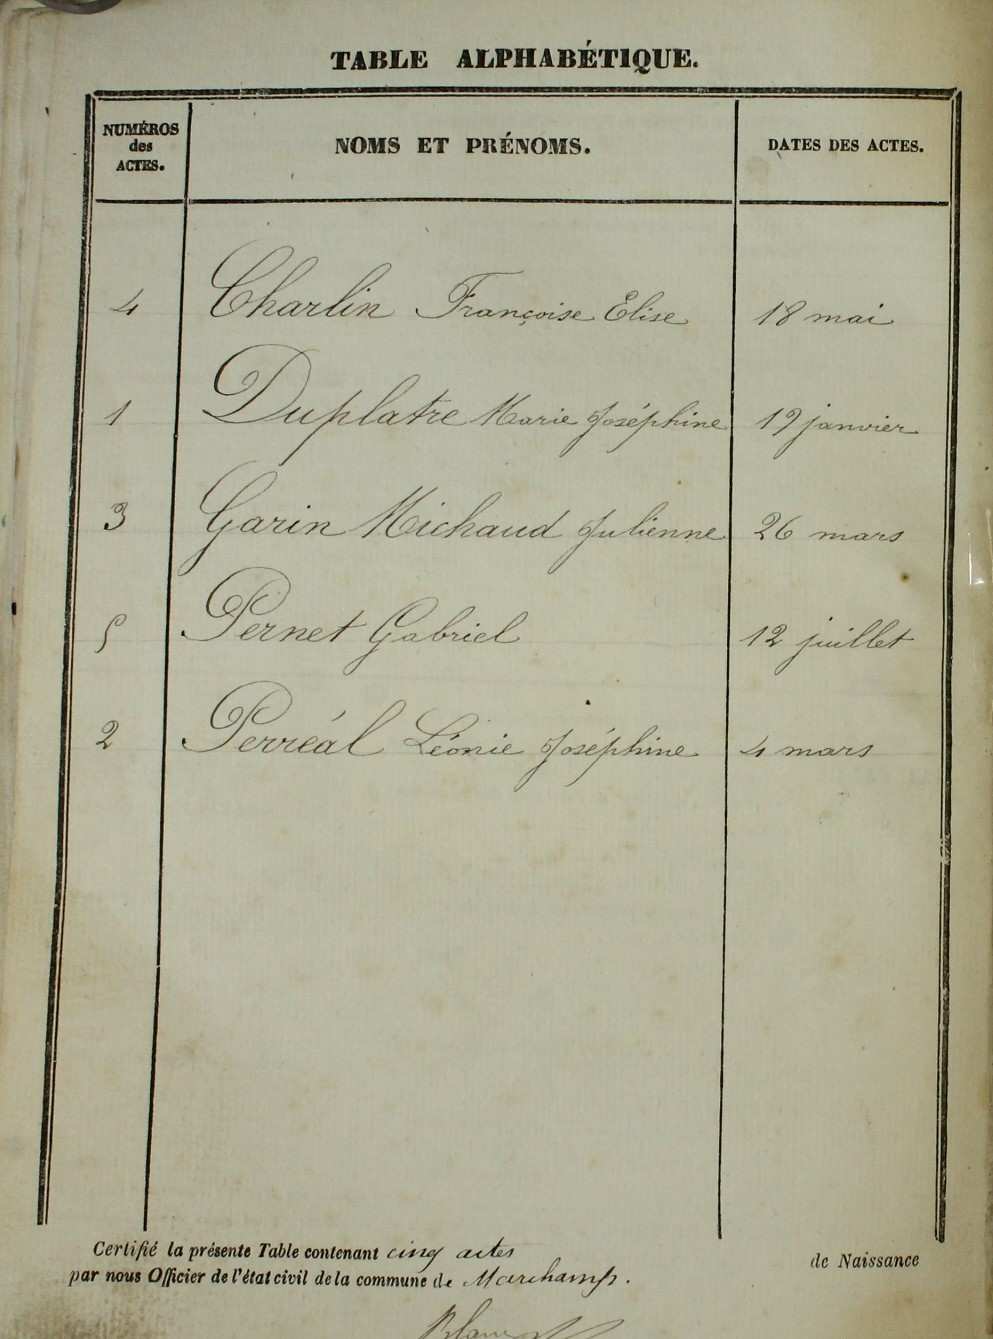 TABLE ALPHABÉTIQUE.
NUMÉROS
des
ACTES.
NOMS ET PRÉNOMS.
DATES DES ACTES.
4 Charlin Françoise Elise 18 mai
1 Duplatre Marie Joséphine 19 janvier
3 Garin Michaud Julienne 26 mars
5 Pernet Gabriel 12 juillet
2 Perréal Léonie Joséphine 4 mars
Certifié la présente Table contenant cinq actes de Naissance
par nous Officier de l'état civil de la commune de Marchamp.